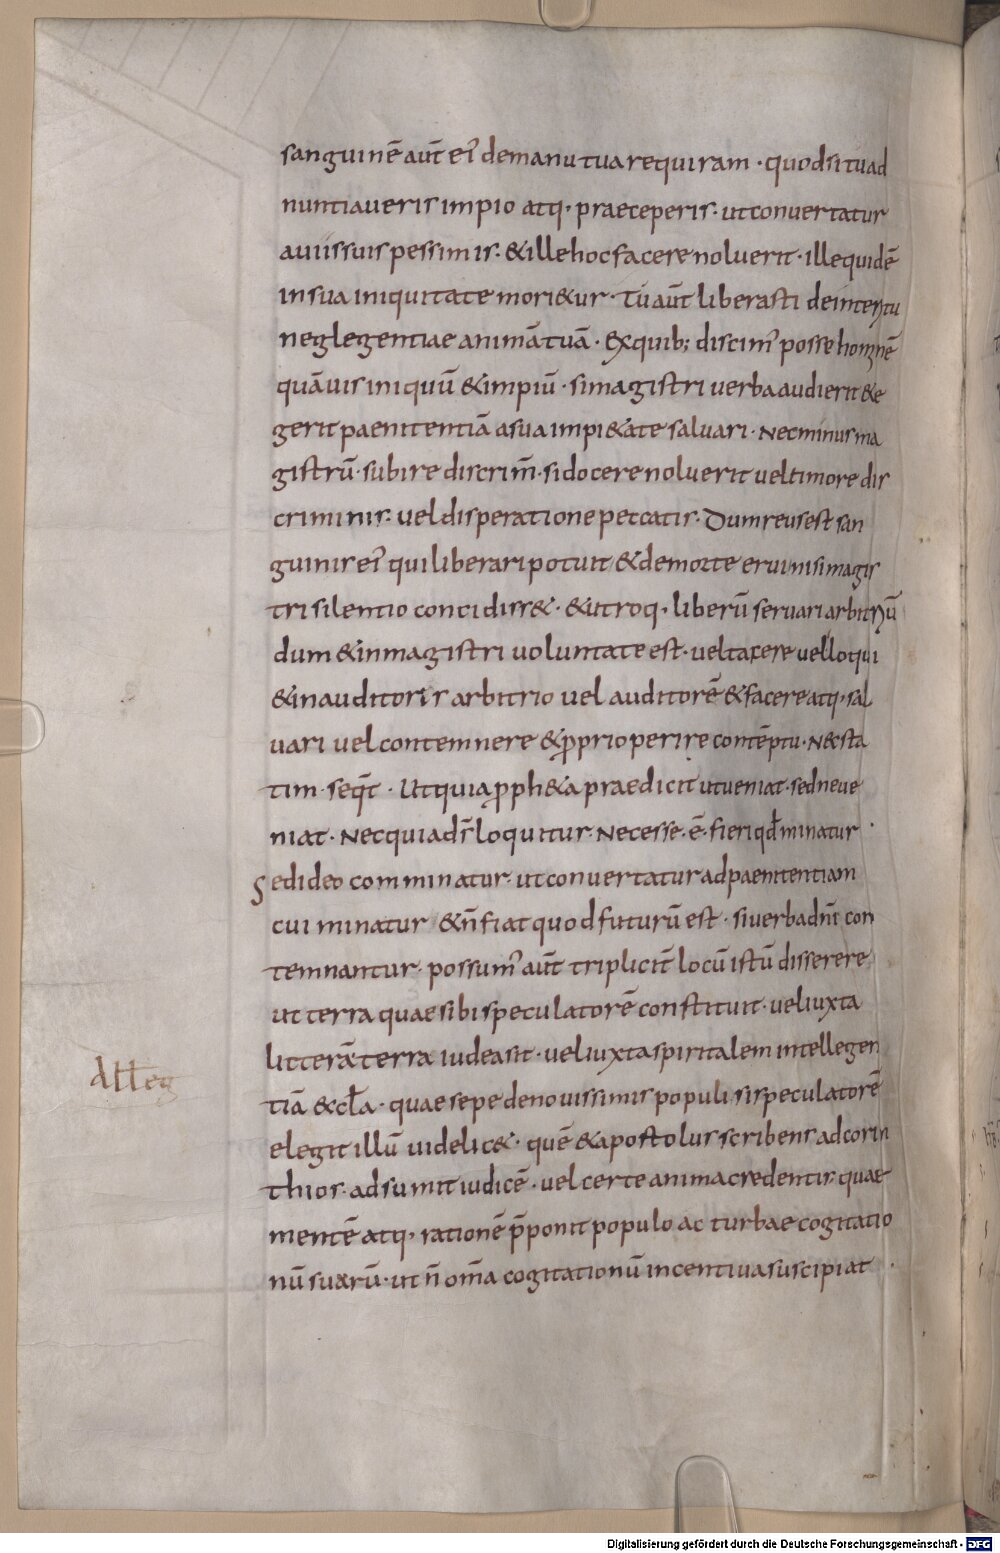 sanguinē aūt ei᾽ de manu tua requiram · quod si tu ad
nuntiaveris impio atq· praeceperis· ut convertatur
a viis suis pessimis· & ille hoc facere noluerit· ille quidē
in sua iniquitate mori&ur· Tu aūt liberasti de interitu
neglegentiae animā tuā· Ex quib; discim᾽ posse hominē
quāvis iniquū & impiū· si magistri verba audierit & e
gerit paenitentiā a sua impi&ate salvari· Nec minus ma
gistrū· subire discrim̄· si docere noluerit vel timore dis
criminis· vel disperatione peccatis· Dum reus est san
guinis ei᾽ qui liberari potuit & de morte erui nisi magis
tri silentio concidiss&· & utroq· liberū servari arbitriū
dum & in magistri voluntate est· vel tacere vel loqui
& in auditoris arbitrio vel auditorē & facere atq· sal
vari vel contemnere & p̄prio perire contēptu· Nec sta
tim· seq̄t · Ut quia p̄ph&a praedicit ut veniat· sed ne ve
niat· Nec quia d̄s loquitur· Necesse· ē· fieri qd̄ minatur ·
Sed ideo comminatur· ut convertatur ad paenitentiam
cui minatur & n̄ fiat quod futurū est· si verba dn̄i con
temnantur· possum᾽ aūt triplicit̄ locū istū disserere
ut terra quae sibi speculatorē constituit· vel iuxta
litterā terra iudea sit· vel iuxta spiritalem intellegen
tiā & ecl̄a· quae sepe de novissimis populi si speculatorē
elegit illū videlic&· quē & apostolus scribens ad corin
thios· adsumit iudicē· vel certe anima credentis· quae
mentē atq· rationē p̄ponit populo ac turbae cogitatio
nū suarū· ut n̄ om̄a cogitationū incentiva suscipiat ·
Digitalisierung gefördert durch die Deutsche Forschungsgemeinschaft - DFG